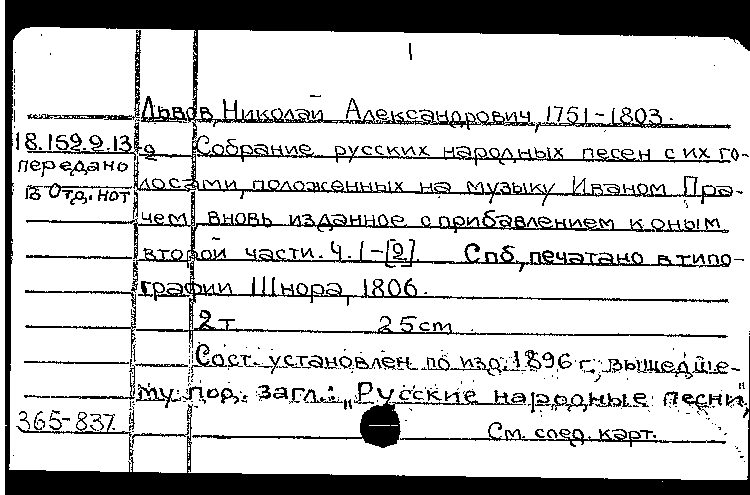 1
Львов, Николай Александрович, 1751-1803.
18.159.9.13
а Собрание русских народных песен с их го-
передано
в Отд. нот
лосами, положенных на музыку Иваном Пра-
чем, вновь изданное с прибавлением к оным
второй части. Ч. 1-[2] Спб, печатано в типо-
графии Шнора, 1806.
2 т. 25cm
Сост. установлен по изд. 1896 г., вышедше-
му под. загл.: „Русские народные песни",
365-837
См. след. карт.